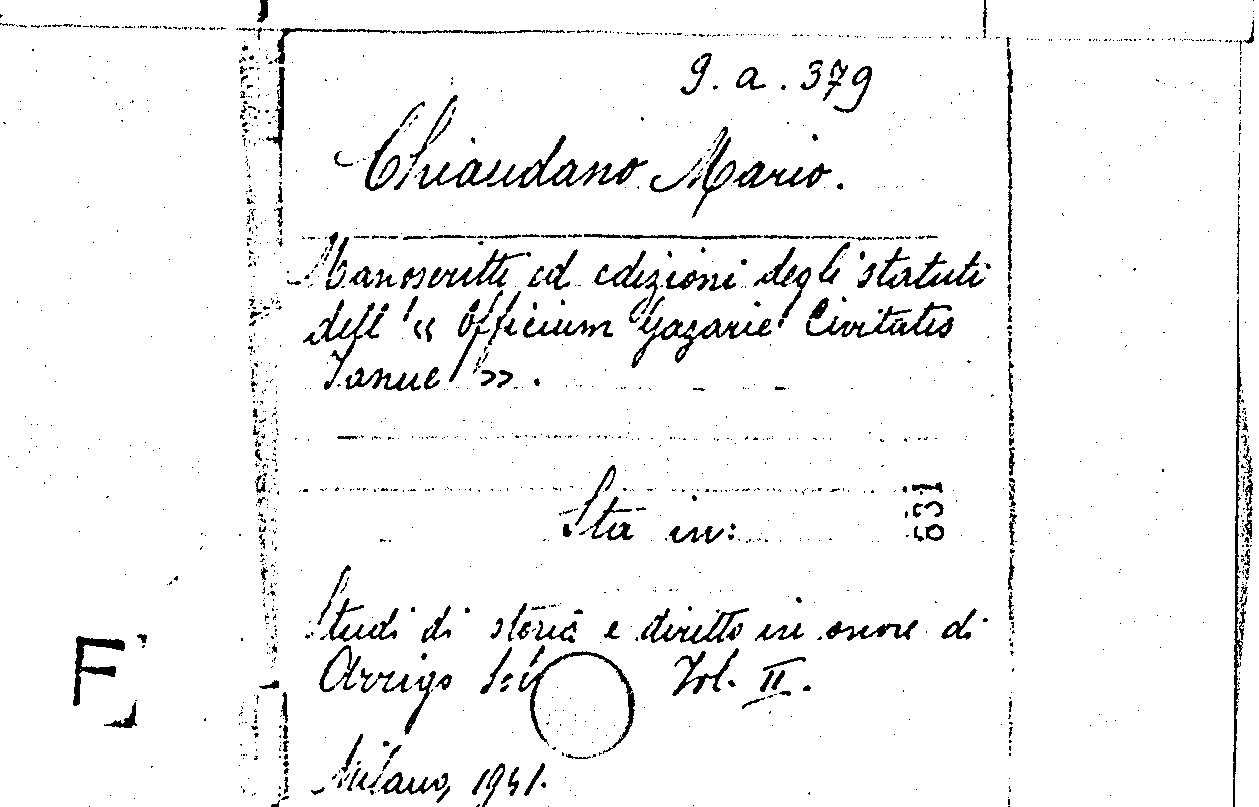 9.a.379
Chiaudano Mario.
Manoscritti ed edizioni degli statuti
dell'« Officium Gazarie Civitatis
Ianue ».
Sta in:
631
Studi di storia e diritto in onore di
Arrigo Vol. II.
F
Milano, 1941.